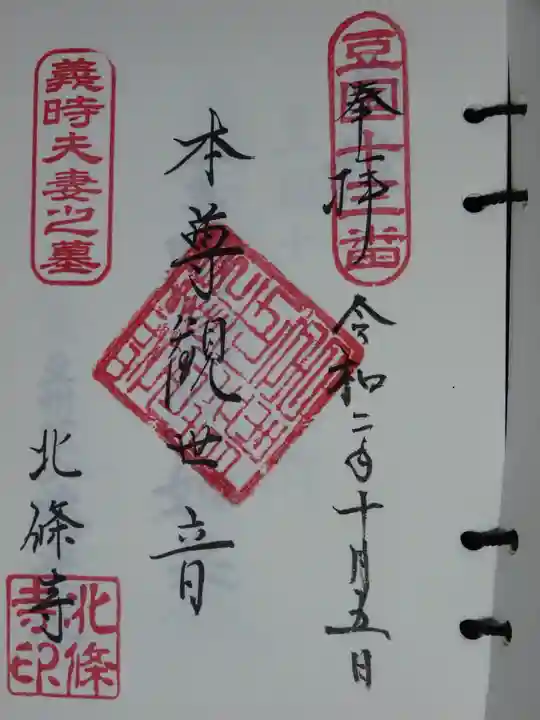 豆国十三番
奉拝
令和二年十月五日
本尊観世音
義時夫妻之墓
北條寺
北條寺印